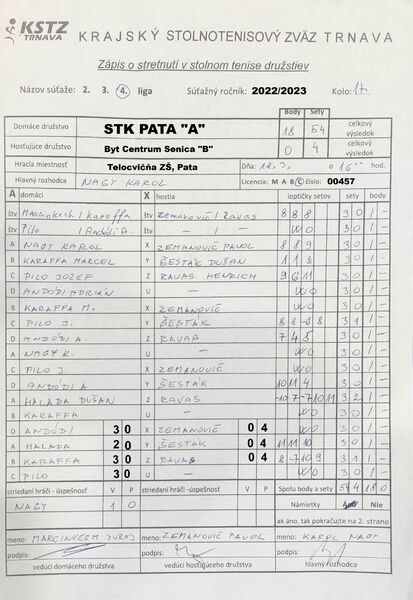 KSTZ
TRNAVA
KRAJSKÝ STOLNOTENISOVÝ ZVÄZ TRNAVA
Zápis o stretnutí v stolnom tenise družstiev
Názov súťaže: 2. 3. 4. liga Súťažný ročník: 2022/2023 Kolo: 17.
Body Sety
Domáce družstvo STK PATA "A" 18 54 celkový výsledok
Hosťujúce družstvo Byt Centrum Senica "B" 0 4 celkový výsledok
Hracia miestnosť Telocvičňa ZŠ, Pata Dňa: 12.3. o 16 hod.
Hlavný rozhodca NAGY KAROL Licencia: M A B C číslo: 00457
A domáci X hostia loptičky setov sety body
štv Marcinkech / Karaffa štv Zemanovič / Ravas 8 8 8 3 0 1 -
štv Pilo / Andódi A. štv - / - WO 3 0 1 -
A NAGY KAROL X ZEMANOVIČ PAVOL 8 8 9 3 0 1 -
B KARAFFA MARCEL Y ŠESTÁK DUŠAN 1 1 8 3 0 1 -
C PILO JOZEF Z RAVAS HENRICH 9 6 11 3 0 1 -
D ANDÓDI ADRIÁN U - WO 3 0 1 -
B KARAFFA M. X ZEMANOVIČ WO 3 0 1 -
C PILO J. Y ŠESTÁK 8 8 -8 8 3 1 1 -
D ANDÓDI A. Z RAVAS 7 4 5 3 0 1 -
A NAGY K. U - WO 3 0 1 -
C PILO J. X ZEMANOVIČ WO 3 0 1 -
D ANDÓDI A. Y ŠESTÁK 10 11 4 3 0 1 -
A HALADA DUŠAN Z RAVAS -10 7 -7 10 11 3 2 1 -
B KARAFFA U - WO 3 0 1 -
D ANDÓDI 3 0 X ZEMANOVIČ 0 4 WO 3 0 1 -
A HALADA 2 0 Y ŠESTÁK 0 4 11 11 10 3 0 1 -
B KARAFFA 3 0 Z RAVAS 0 4 8 -7 10 9 3 1 1 -
C PILO 3 0 U - WO 3 0 1 -
striedaní hráči - úspešnosť V P striedaní hráči - úspešnosť V P Spolu body a sety 54 4 18 0
NAGY 1 0 Námietky Áno Nie
ak áno, tak pokračujte na 2. strane
meno: MARCINKECH JURAJ meno: ZEMANOVIČ PAVOL meno: KAROL NAGY
podpis: podpis: podpis:
vedúci domáceho družstva vedúci hosťujúceho družstva hlavný rozhodca